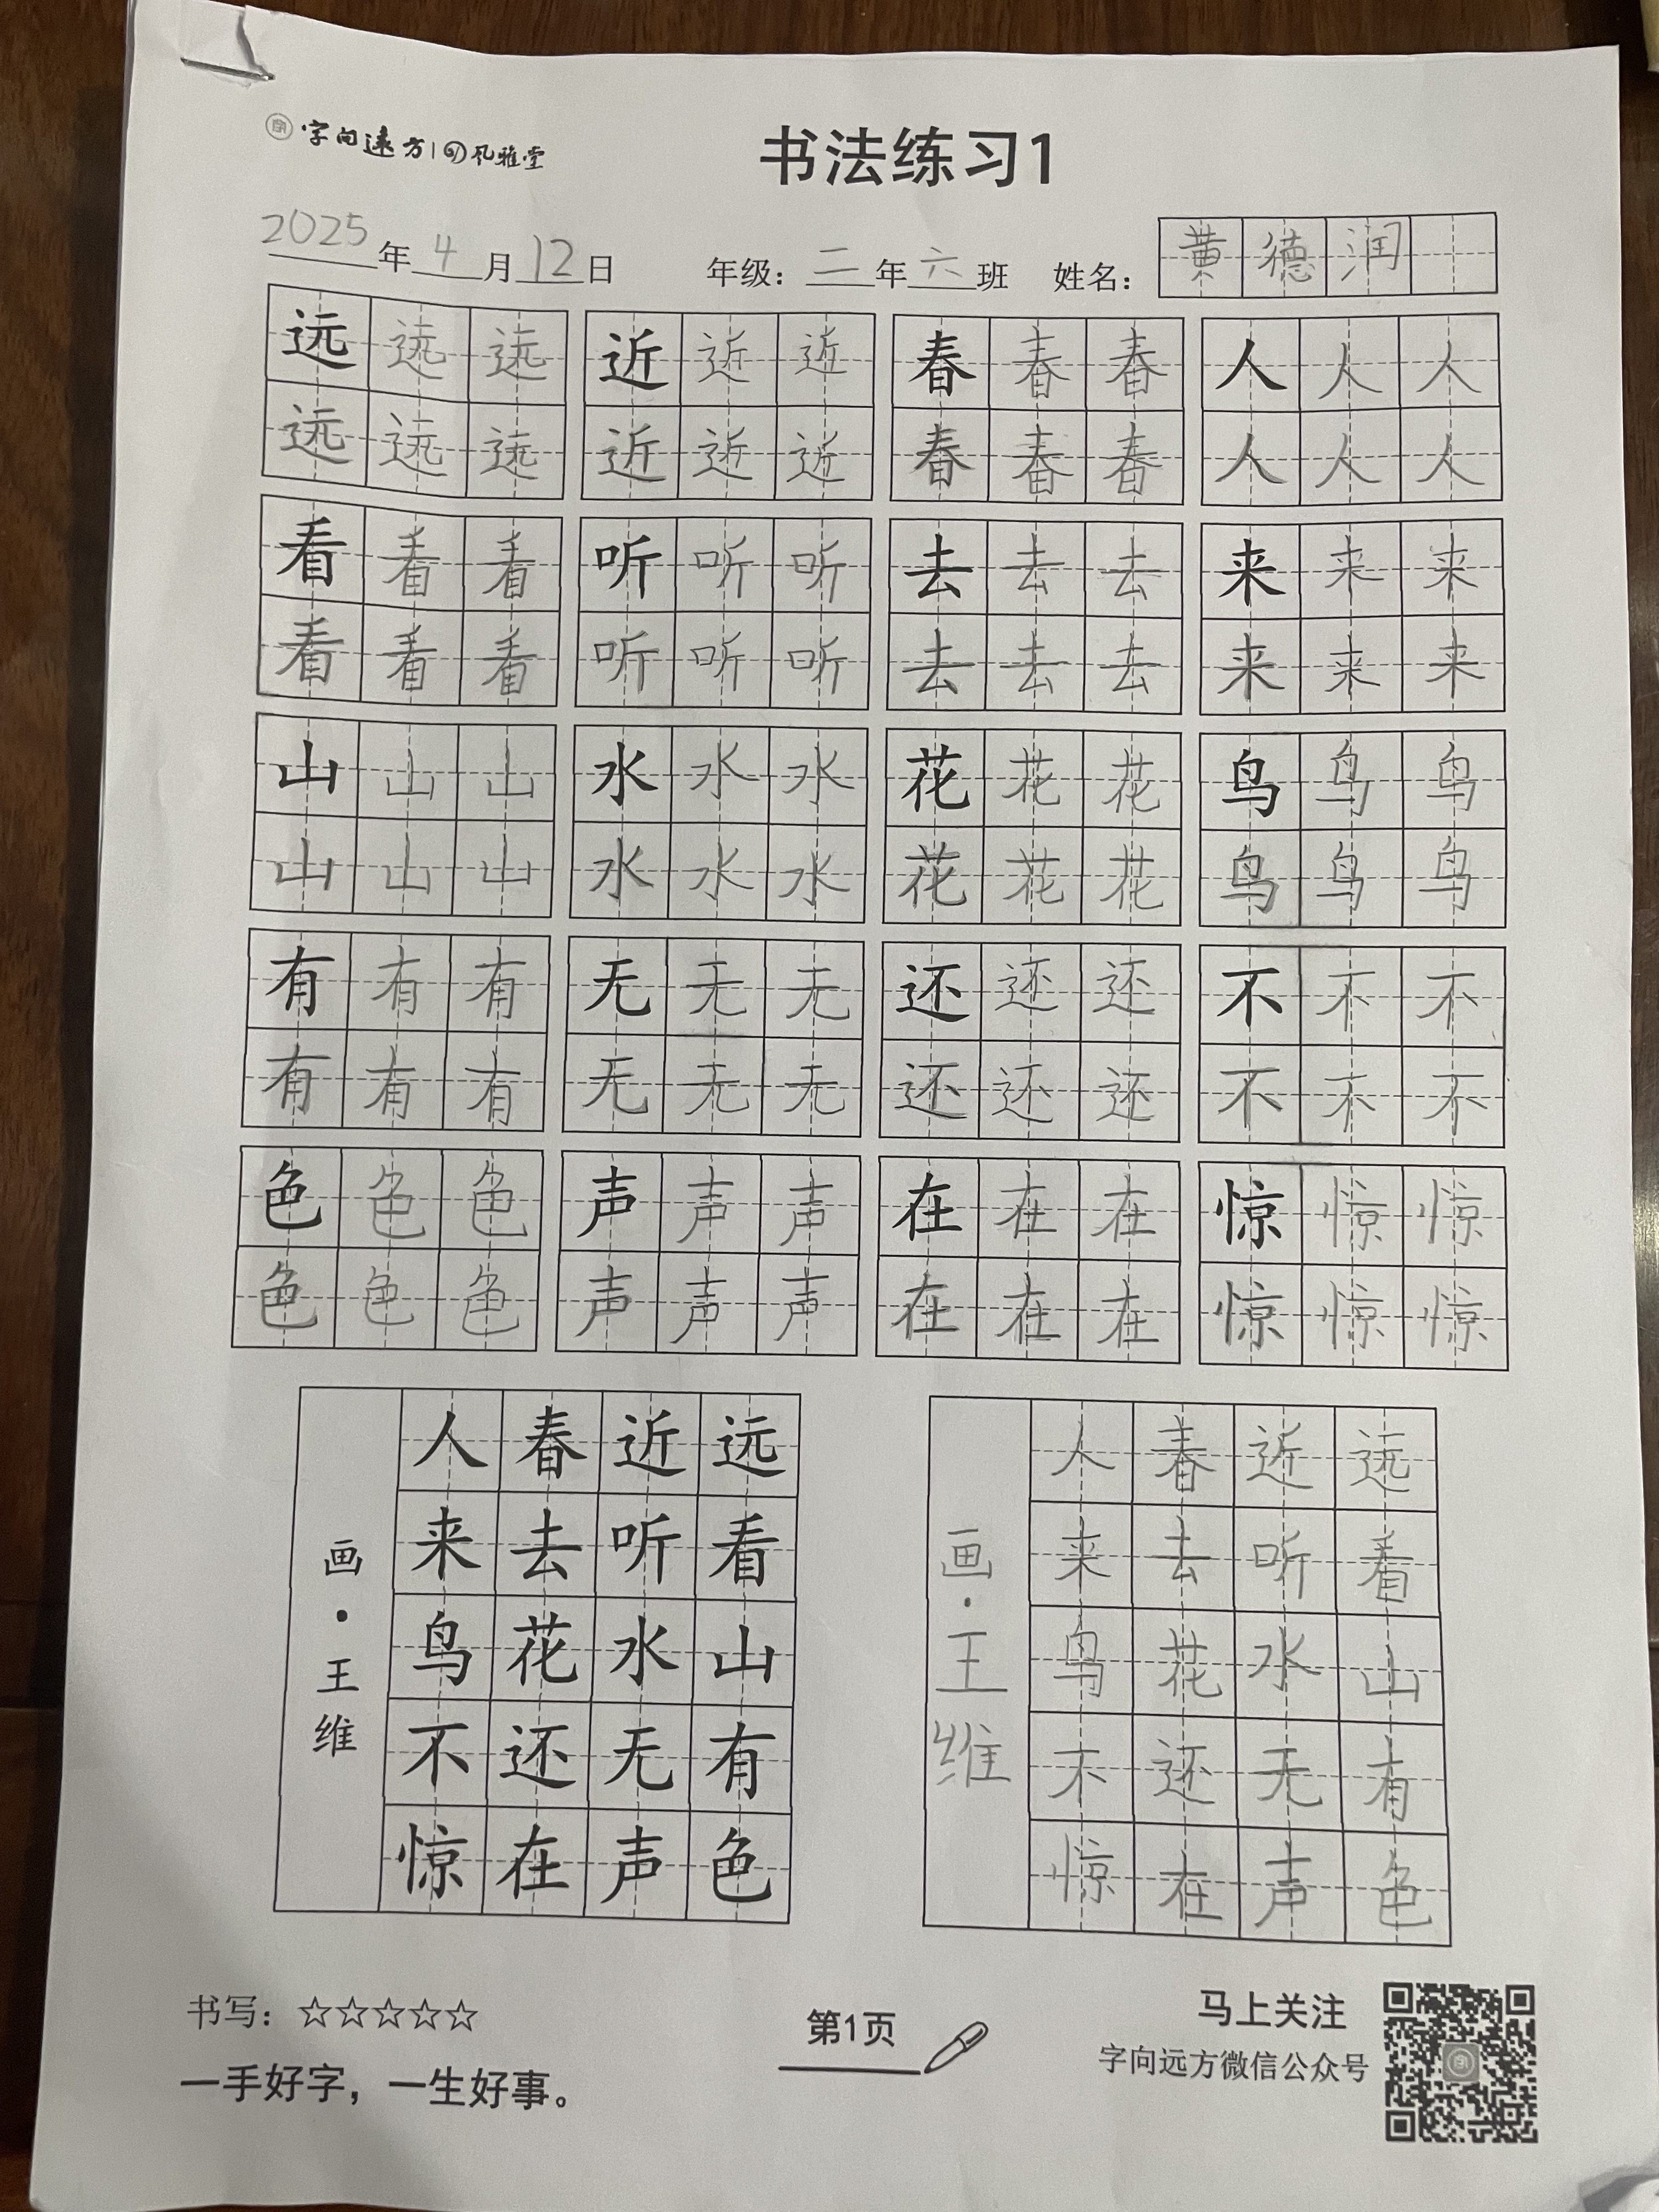 字向远方 风雅堂
书法练习1
2025年4月12日 年级：二年六班 姓名：黄德润
远远远 近近近 春春春 人人人
远远远 近近近 春春春 人人人
看看看 听听听 去去去 来来来
看看看 听听听 去去去 来来来
山山山 水水水 花花花 鸟鸟鸟
山山山 水水水 花花花 鸟鸟鸟
有有有 无无无 还还还 不不不
有有有 无无无 还还还 不不不
色色色 声声声 在在在 惊惊惊
色色色 声声声 在在在 惊惊惊
远看山有色
近听水无声
春去花还在
人来鸟不惊
画·王维
远看山有色
近听水无声
春去花还在
人来鸟不惊
画·王维
书写：☆☆☆☆☆
一手好字，一生好事。
第1页
马上关注
字向远方微信公众号